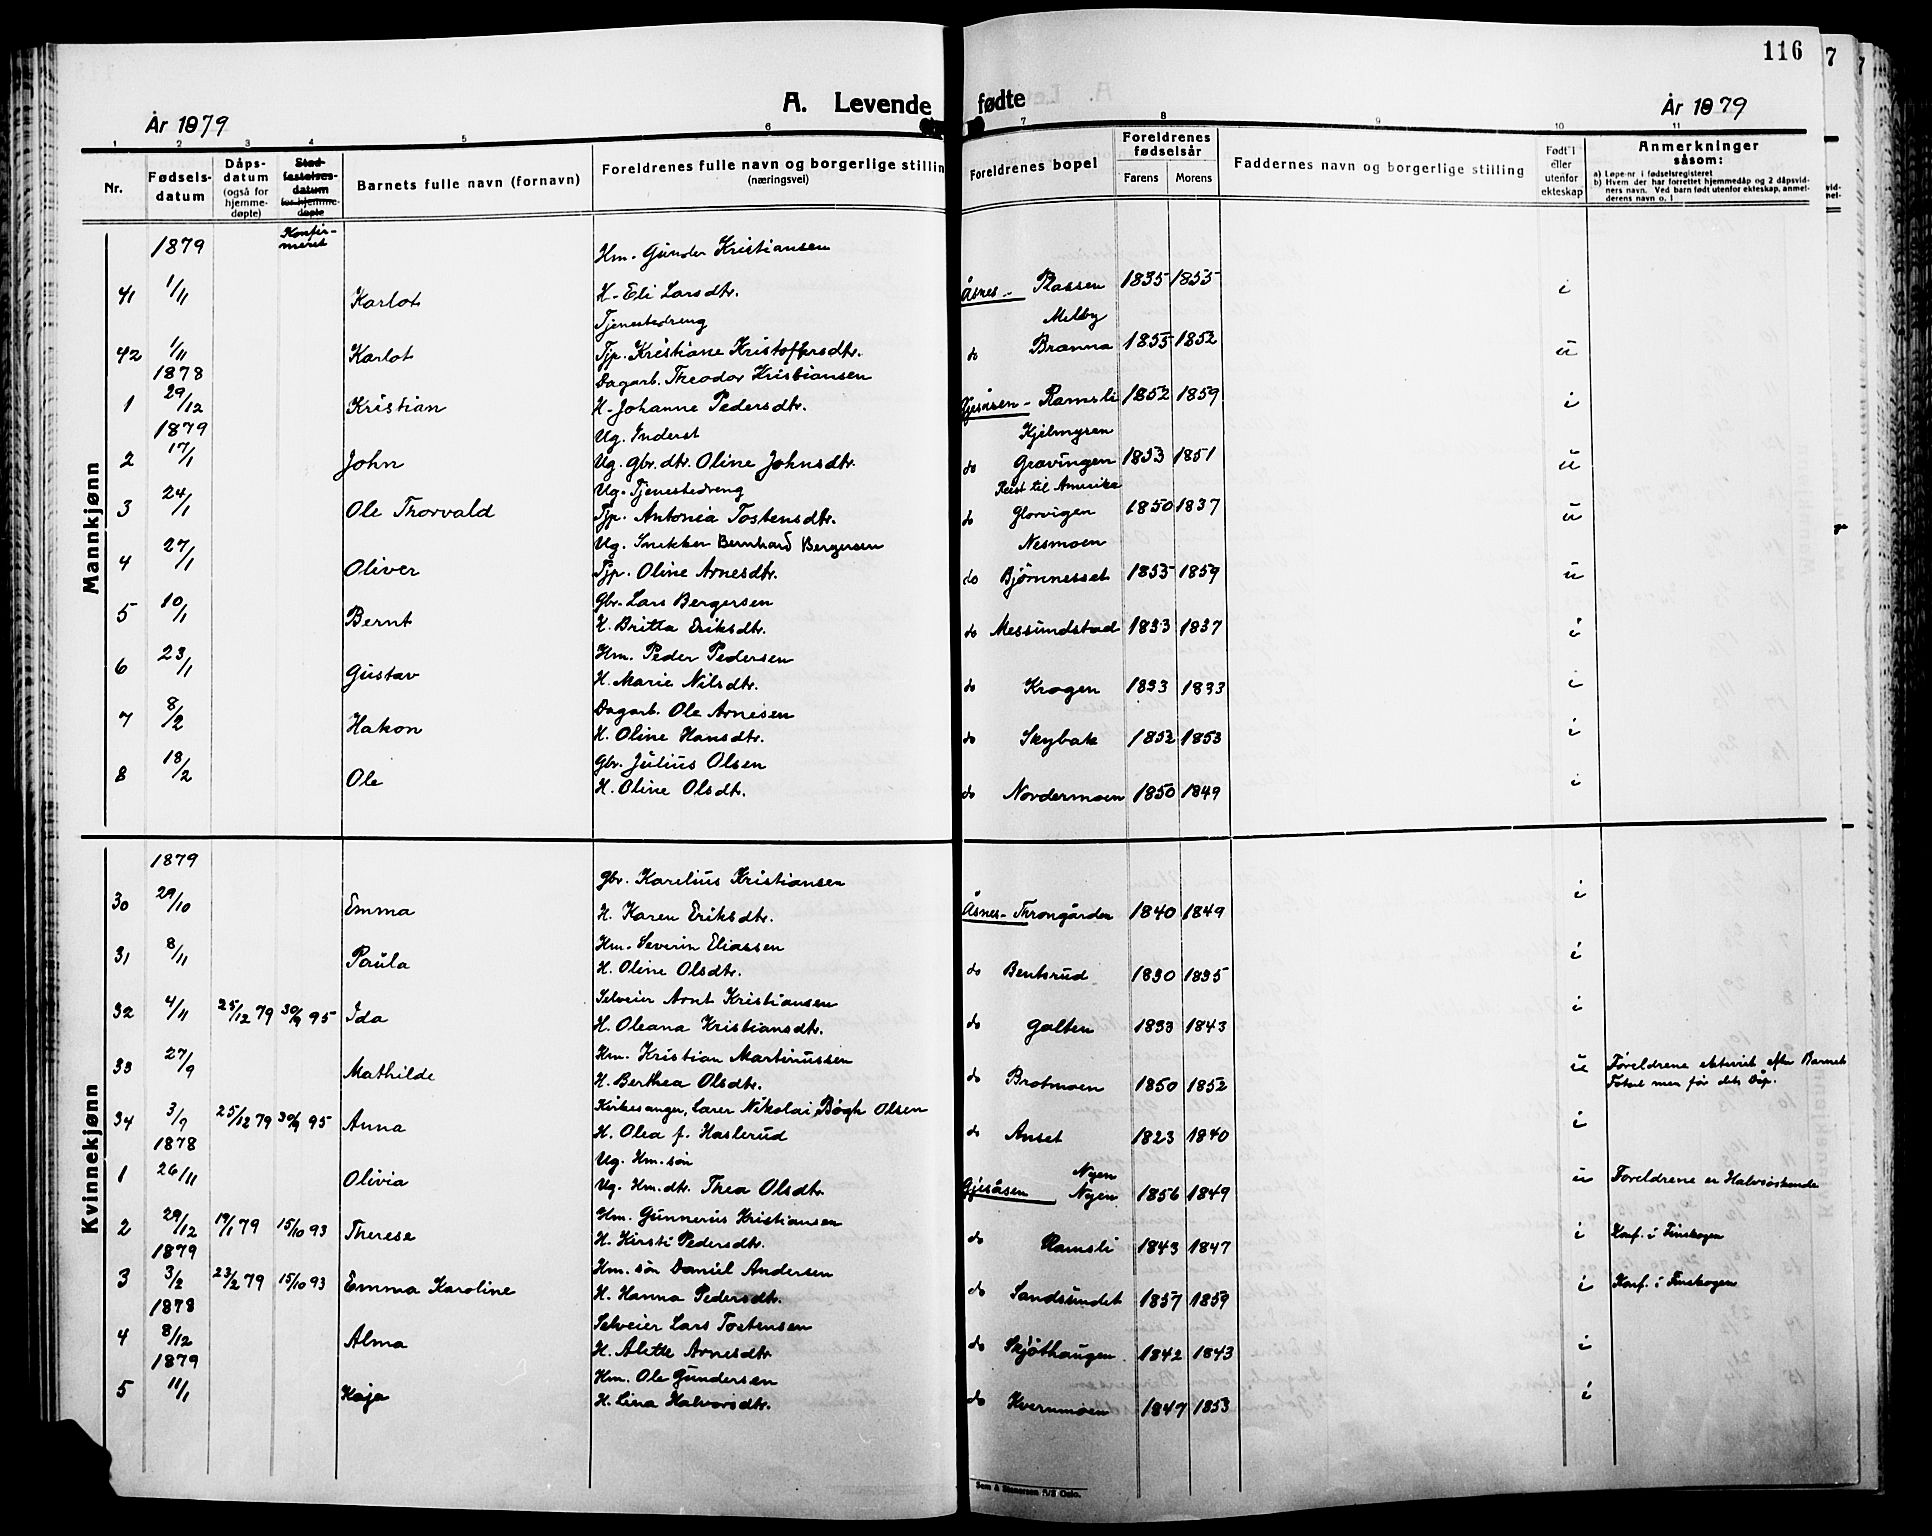 116
A. Levende fødte
År 1879
År 1879
1 2 3 4 5 6 7 8 9 10 11
Nr. Fødsels-datum Dåps-datum (også for hjemme-døpte) Stad-festelses-datum for hjemme-døpte Barnets fulle navn (fornavn) Foreldrenes fulle navn og borgerlige stilling (næringsvei) Foreldrenes bopel Foreldrenes fødselsår Farens Morens Faddernes navn og borgerlige stilling Født i eller utenfor ekteskap Anmerkninger såsom:
a) Løpe-nr i fødselsregisteret
b) Hvem der har forrettet hjemmedåp og 2 dåpsvidners navn. Ved barn født utenfor ekteskap, anmelderens navn o. l
Konfirmeret
Mannkjønn
1879 Hm. Gunder Kristiansen
41 1/11 Karlot H. Eli Larsdtr. Åsnes - Plassen 1835 1855 i
Tjenestedreng Melby
42 1/11 Karlot Tjp. Kristiane Kristoffersdtr. do Branna 1855 1852 u
1878 Dagarb. Theodor Kristiansen
1 29/12 Kristian H. Johanne Pedersdtr. Gjesåsen - Ramsli 1852 1859 i
1879 Ug. Inderst Kjelmyren
2 17/1 John Ug. Gbr. dtr. Oline Johnsdtr. do Gravingen 1833 1851 u
Ug. Tjenestedreng Reist til Amerika
3 24/1 Ole Thorvald Tjp. Antonia Tostensdtr. do Glorvigen 1850 1837 u
Ug. Snekker Bernhard Bergersen Nesmoen
4 27/1 Oliver Tjp. Oline Arnesdtr. do Bjørnnesset 1855 1859 u
Gbr. Lars Bergersen
5 10/1 Bernt H. Britta Eriksdtr. do Messundstad 1833 1837 i
Hm. Peder Pedersen
6 23/1 Gustav H. Marie Nilsdtr. do Krogen 1833 1833 i
Dagarb. Ole Arnesen
7 8/2 Hakon H. Oline Hansdtr. do Skybak 1852 1853 i
Gbr. Julius Olsen
8 18/2 Ole H. Oline Olsdtr. do Nordermoen 1850 1849 i
Kvinnekjønn
1879 Gbr. Karelius Kristiansen
30 29/10 Emma H. Karen Eriksdtr. Åsnes - Throngården 1840 1849 i
Hm. Severin Eliassen
31 8/11 Paula H. Oline Olsdtr. do Bentsrud 1830 1835 i
Selveier Arnt Kristiansen
32 4/11 25/12 79 30/9 95 Ida H. Oleana Kristiansdtr. do Galten 1833 1843 i
Hm. Kristian Martinussen
33 27/9 Mathilde H. Berthea Olsdtr. do Brotmoen 1850 1852 u Foreldrene ektevict efter Barnets Fötsel men för dets Dåp.
Kirkesanger, Lærer Nikolai Bøgh Olsen
34 3/9 25/12 79 30/9 95 Anna H. Olea f. Haslerud do Anset 1823 1840 i
1878 Ug. Hm. søn Nyen
1 26/11 Olivia Ug. Hm. dtr. Thea Olsdtr. Gjesåsen Nyen 1856 1849 u Foreldrene er Halvsøskende
Hm. Gunnerius Kristiansen
2 29/12 19/1 79 15/10 93 Therese H. Kirsti Pedersdtr. do Ramsli 1843 1847 i Konf. i Finskogen
1879 Hm. søn Daniel Andersen
3 3/2 23/2 79 15/10 93 Emma Karoline H. Hanna Pedersdtr. do Sandsundet 1857 1859 i Konf. i Finskogen
1878 Selveier Lars Tostensen
4 8/12 Alma H. Alette Arnesdtr do Skjöthaugen 1842 1843 i
1879 Hm. Ole Gundersen
5 11/1 Kaja H. Lina Halvorsdtr. do Kvernmoen 1847 1853 i
Sem & Stenersen A/S Oslo.